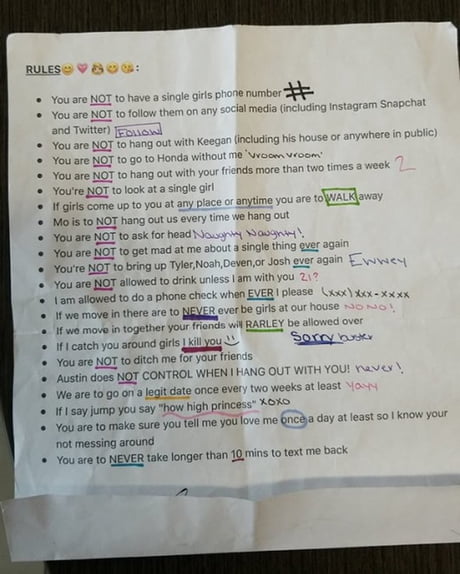 RULES😊💗👸😊😘:
• You are NOT to have a single girls phone number #
• You are NOT to follow them on any social media (including Instagram Snapchat
and Twitter) Follow
• You are NOT to hang out with Keegan (including his house or anywhere in public)
• You are NOT to go to Honda without me 'vroom vroom'
• You are NOT to hang out with your friends more than two times a week 2
• You're NOT to look at a single girl
• If girls come up to you at any place or anytime you are to WALK away
• Mo is to NOT hang out us every time we hang out
• You are NOT to ask for head Naughty Naughty!
• You are NOT to get mad at me about a single thing ever again
• You're NOT to bring up Tyler,Noah,Deven,or Josh ever again Ewwey
• You are NOT allowed to drink unless I am with you 21?
• I am allowed to do a phone check when EVER I please (xxx)xxx-xxxx
• If we move in there are to NEVER ever be girls at our house NO NO!
• If we move in together your friends will RARLEY be allowed over
• If I catch you around girls I kill you :) Sorry buster
• You are NOT to ditch me for your friends
• Austin does NOT CONTROL WHEN I HANG OUT WITH YOU! never!
• We are to go on a legit date once every two weeks at least Yayy
• If I say jump you say "how high princess" XOXO
• You are to make sure you tell me you love me once a day at least so I know your
not messing around
• You are to NEVER take longer than 10 mins to text me back